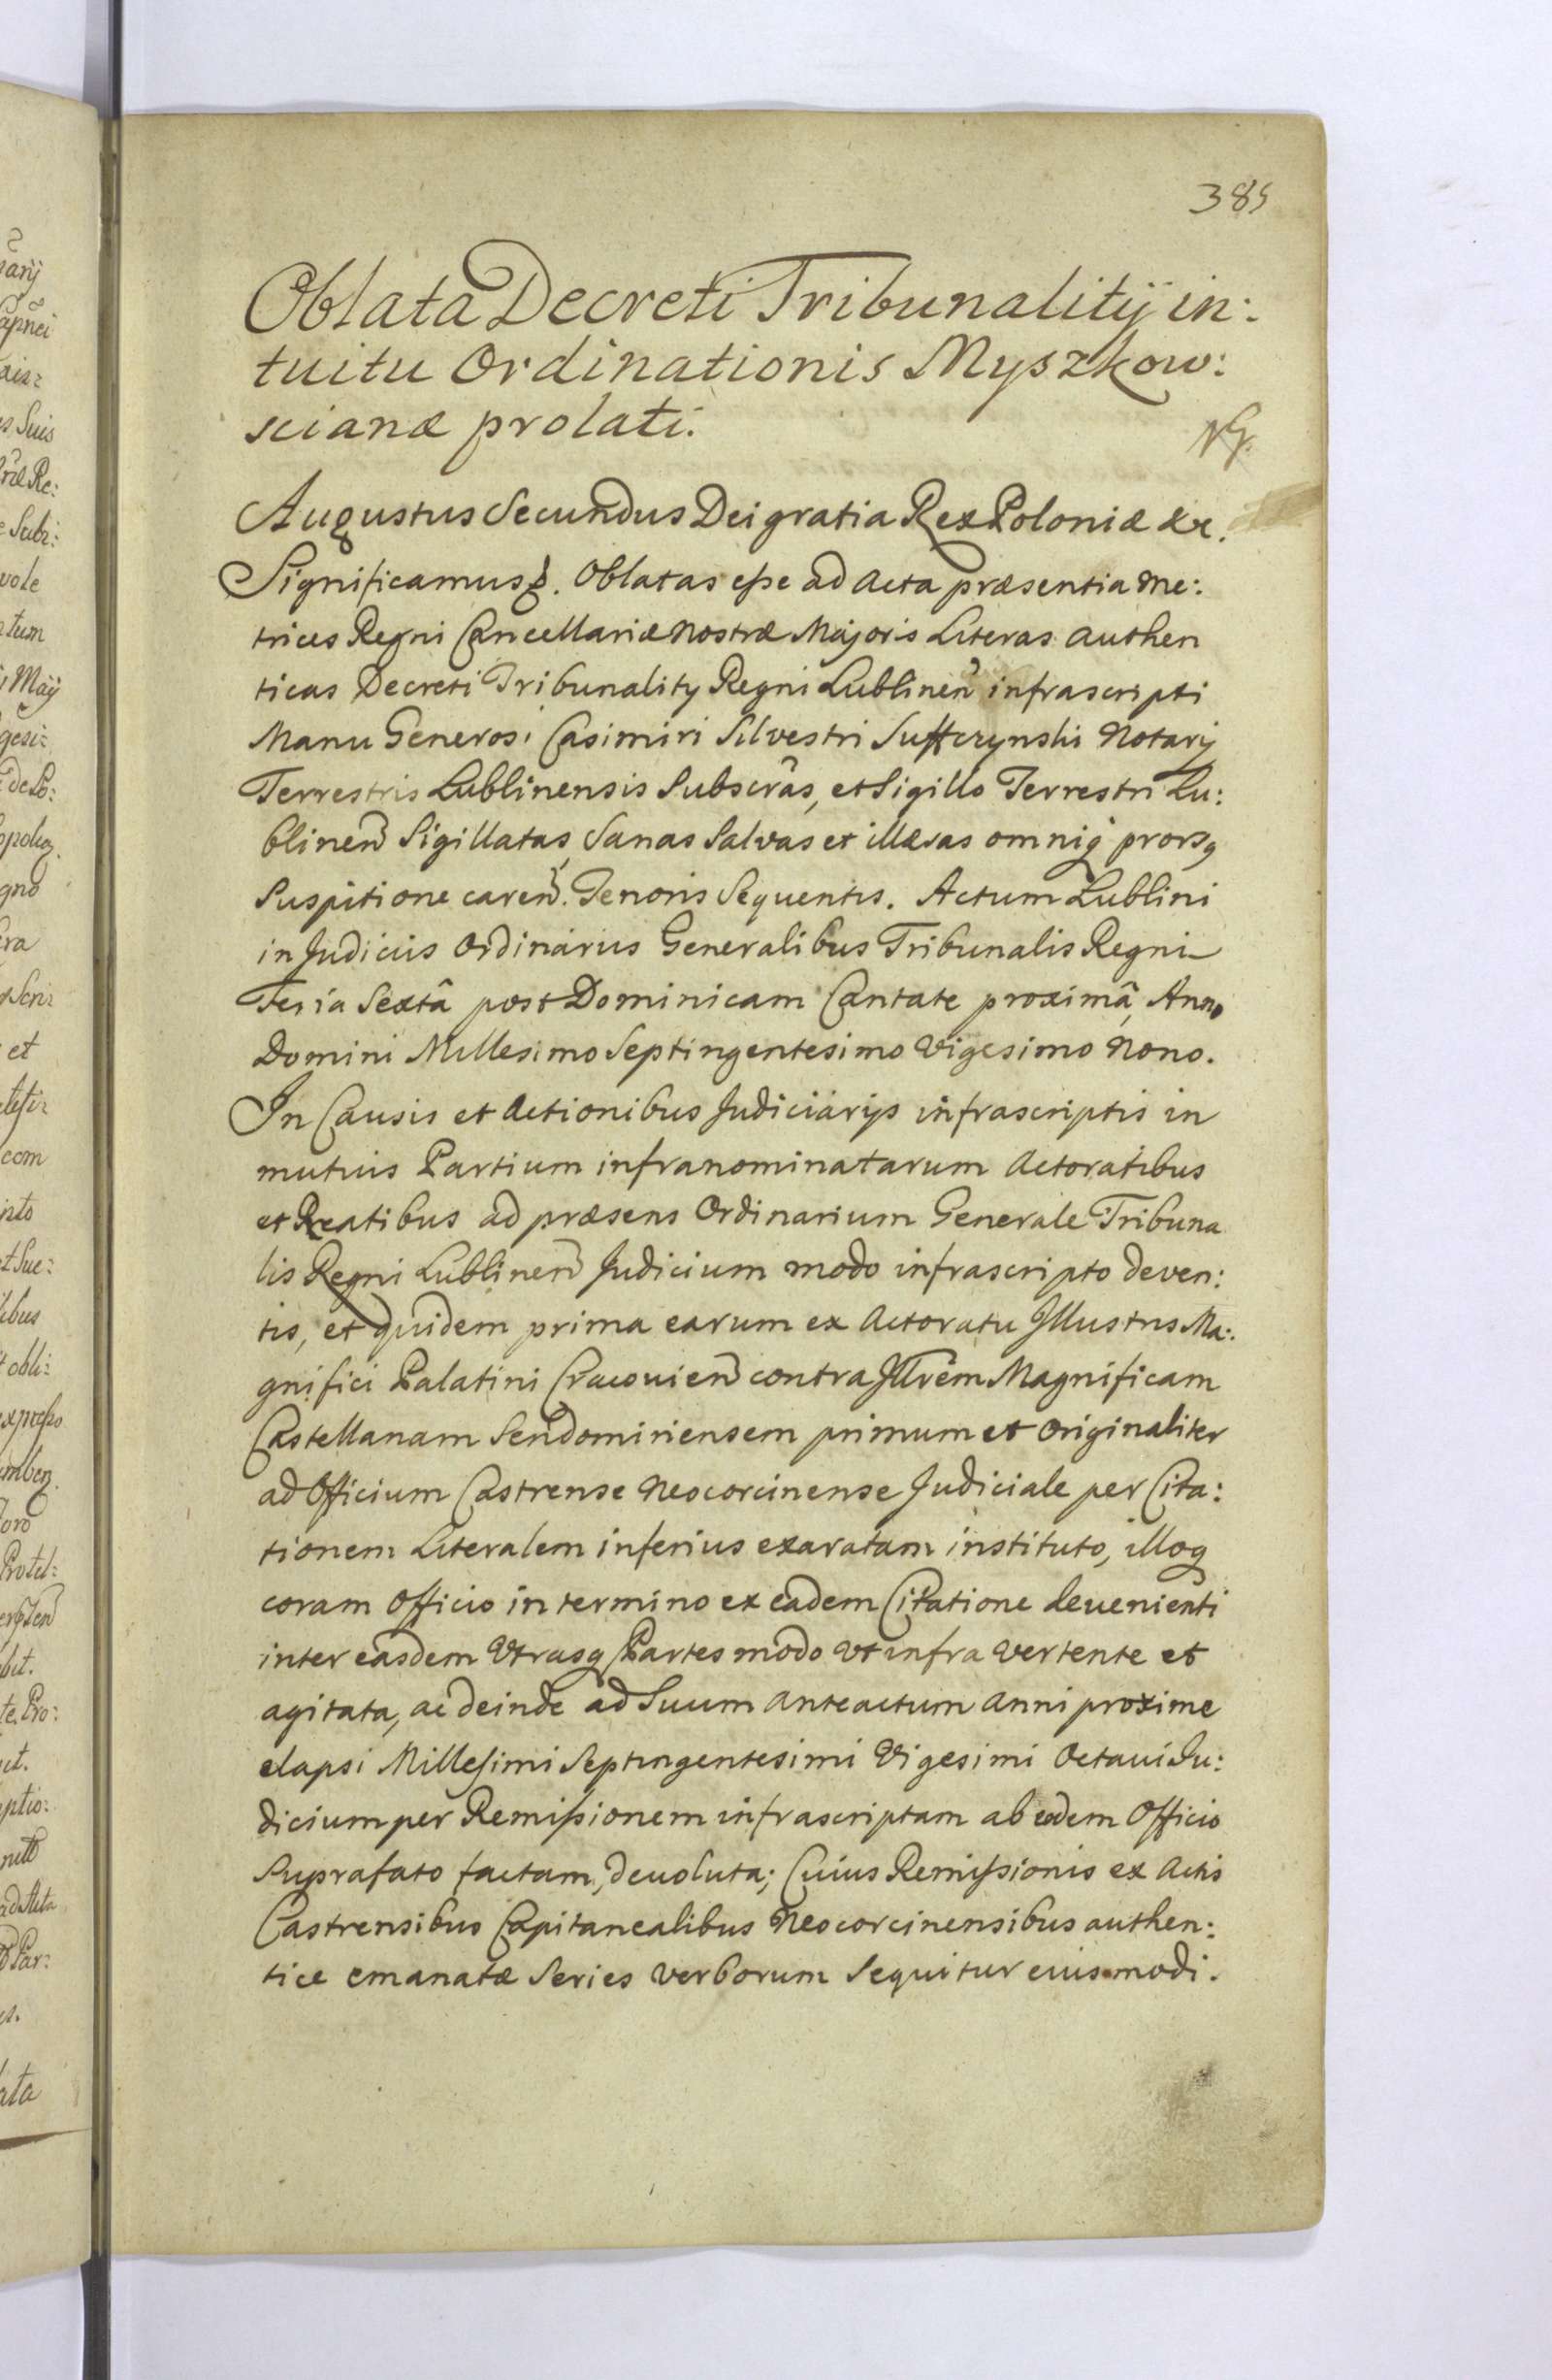 385
Oblata Decreti Tribunalitij in:
tuitu Ordinationis Myszkow:
scianæ prolati.
NG.
Augustus Secundus Dei gratia Rex Poloniæ &c.
Significamus &. Oblatas esse ad Acta præsentia Me:
trices Regni Cancellariæ Nostræ Majoris Literas authen
ticas Decreti Tribunality Regni Lublineñ infrascripti
Manu Generosi Casimiri Silvestri Suffczynski Notarij
Terrestris Lublinensis Subscrâs, et Sigillo Terrestri Lu:
blineñ Sigillatas, Sanas Salvas et illæsas omniq prorsq
Suspitione careñ. Tenoris Sequentis. Actum Lublini
in Judiciis Ordinariis Generalibus Tribunalis Regni
Feria Sextâ post Dominicam Cantate proximâ, Anno
Domini Millesimo Septingentesimo Vigesimo Nono.
In Causis et Actionibus Judiciarijs infrascriptis in
mutuis Partium infranominatarum Actoratibus
et Reatibus ad præsens Ordinarium Generale Tribuna
lis Regni Lublineñ Judicium modo infrascripto deven:
tis, et quidem prima earum ex Actoratu Illustris Ma:
gnifici Palatini Cracovieñ contra Illrem Magnificam
Castellanam Sendomiriensem primum et Originaliter
ad Officium Castrense Neocorcinense Judiciale per Cita:
tionem Literalem inferius exaratam instituto, illoq
coram Officio in termino ex eadem Citatione devenienti
inter easdem Utrasq Partes modo Ut infra vertente et
agitata, ac deinde ad Suum anteactum Anni proxime
elapsi Millesimi Septingentesimi Vigesimi Octavi Ju:
dicium per Remissionem infrascriptam ab eodem Officio
Suprafato factam, devoluta; Cuius Remissionis ex Actis
Castrensibus Capitanealibus Neocorcinensibus authen:
tice emanatæ Series verborum Sequitur eiusmodi.